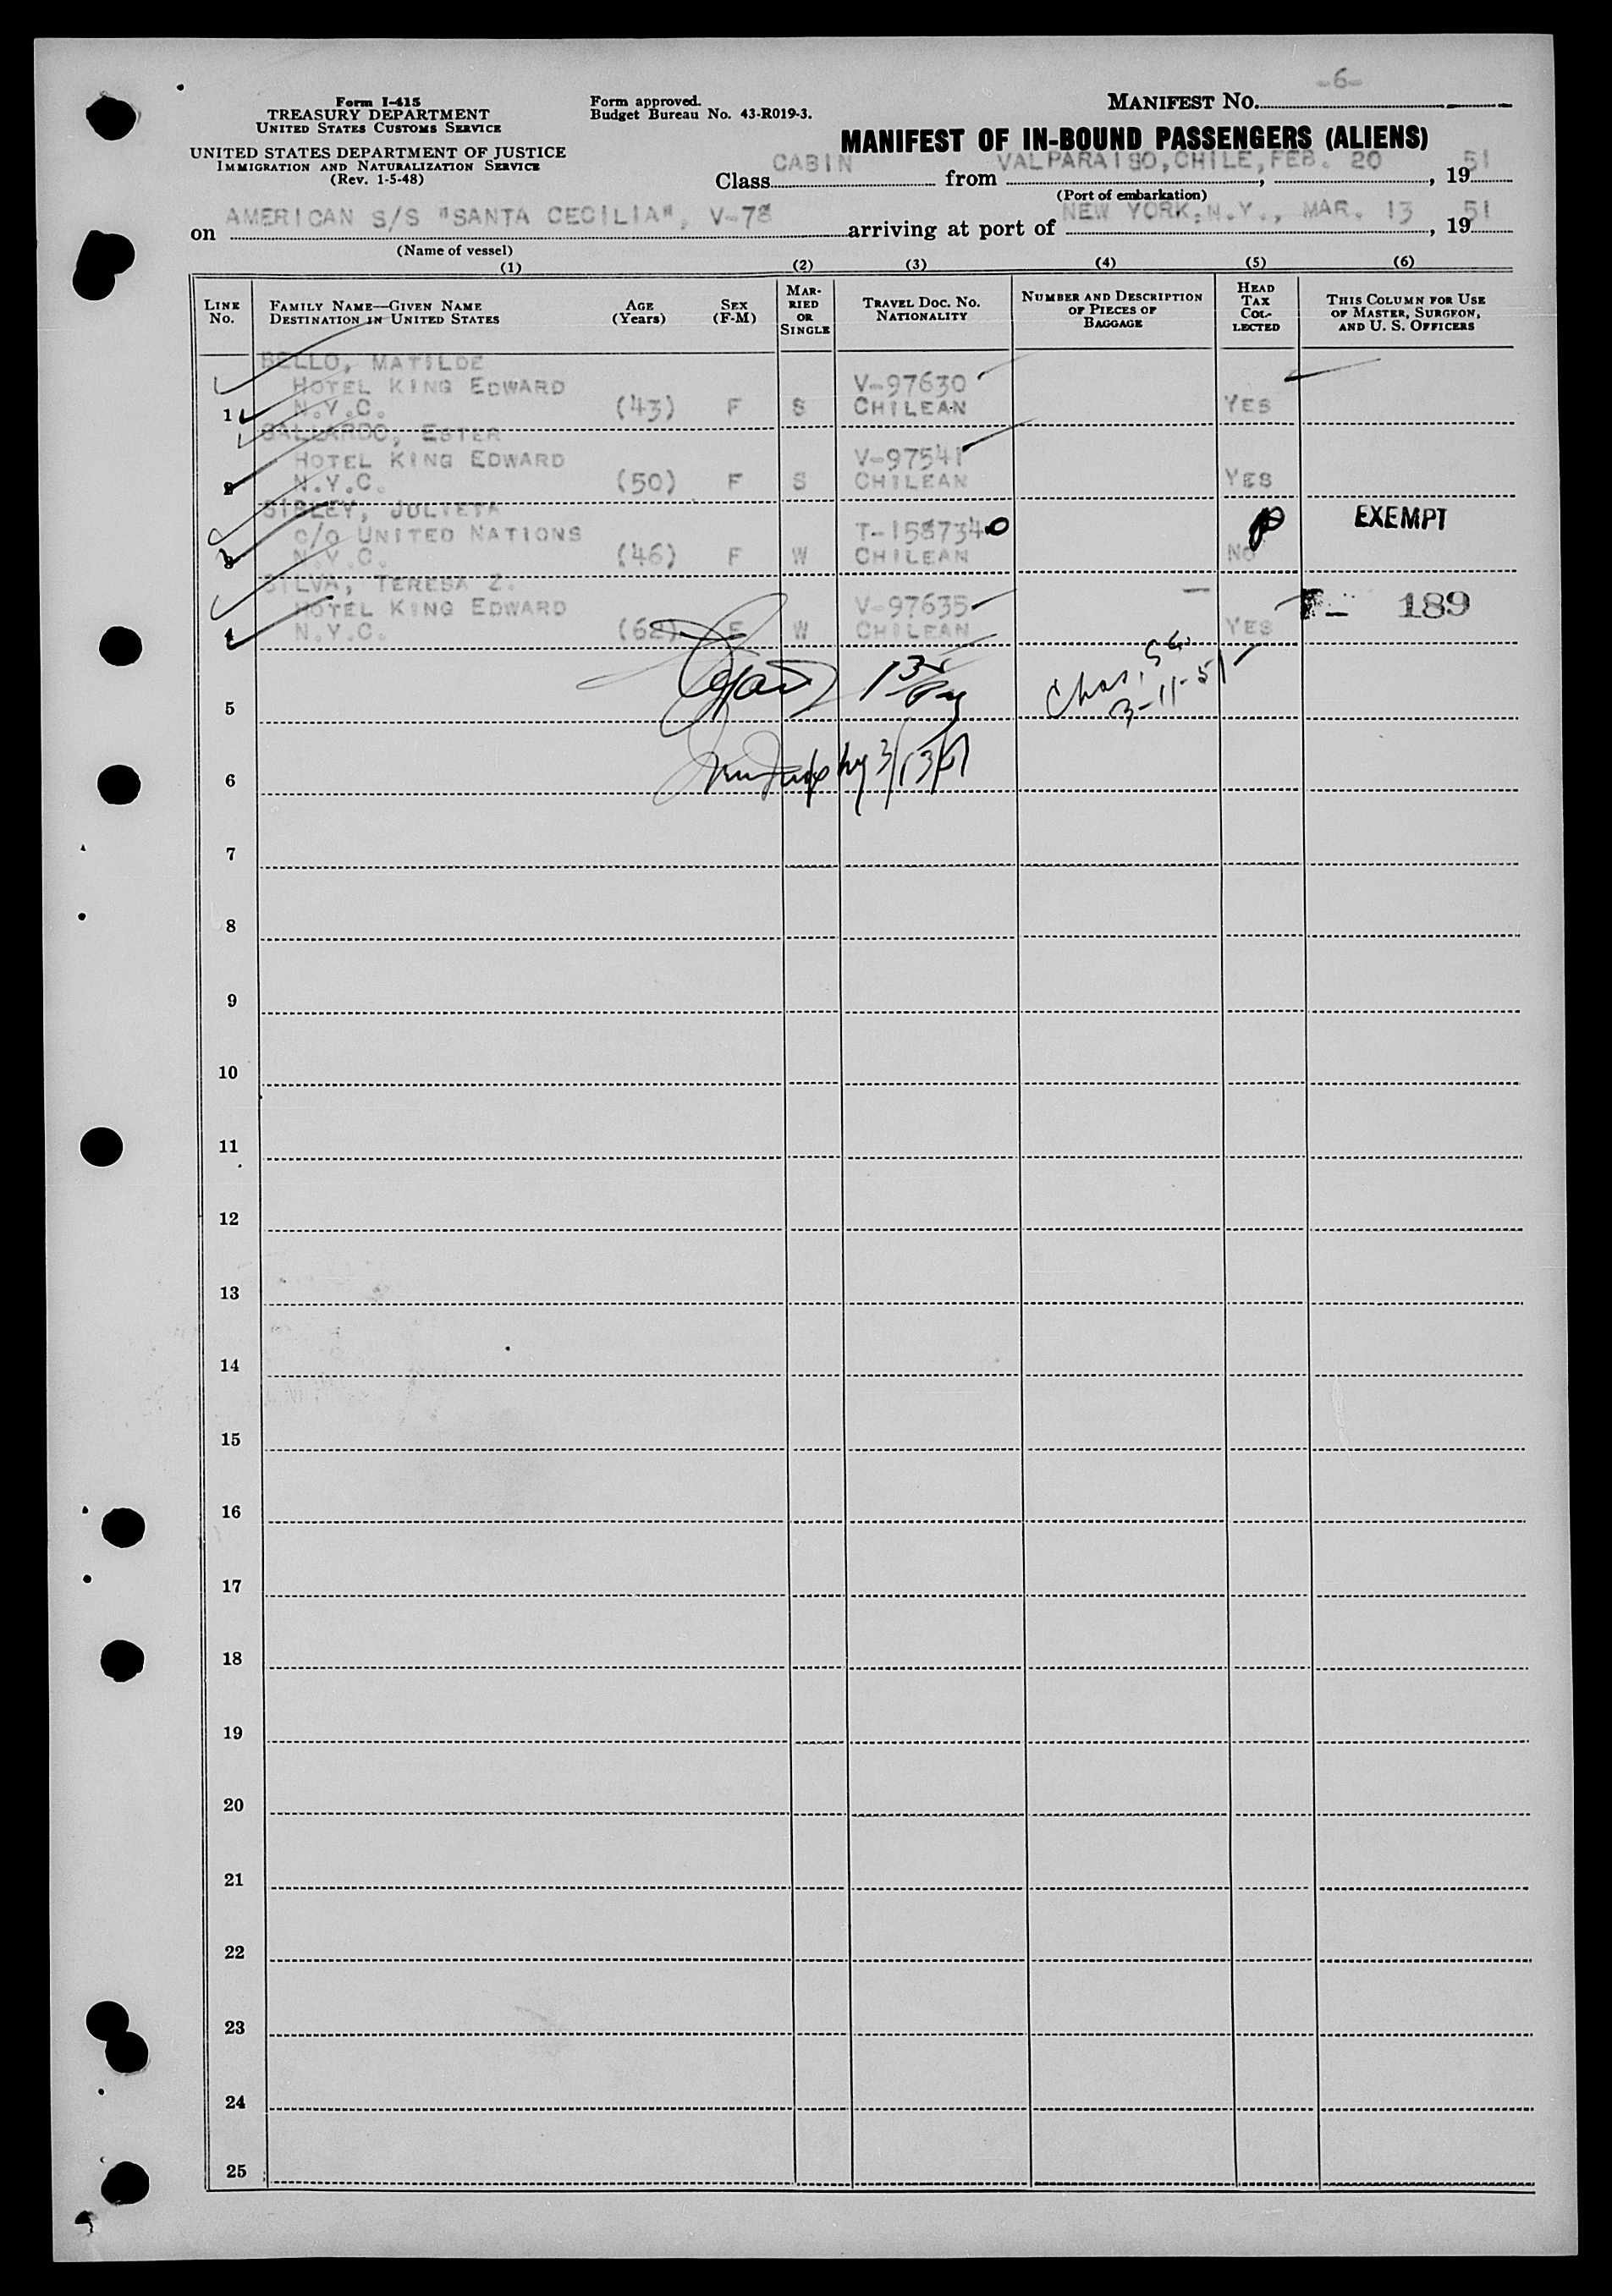 -6-
Form I-415
TREASURY DEPARTMENT
UNITED STATES CUSTOMS SERVICE
UNITED STATES DEPARTMENT OF JUSTICE
IMMIGRATION AND NATURALIZATION SERVICE
(Rev. 1-5-48)
Form approved.
Budget Bureau No. 43-R019-3.
MANIFEST NO.
MANIFEST OF IN-BOUND PASSENGERS (ALIENS)
Class CABIN from VALPARAISO, CHILE, FEB. 20, 1951
(Port of embarkation)
on AMERICAN S/S "SANTA CECILIA", V-78 arriving at port of NEW YORK, N.Y., MAR. 13, 1951
(Name of vessel)
(1) (2) (3) (4) (5) (6)
LINE NO.
FAMILY NAME—GIVEN NAME
DESTINATION IN UNITED STATES
AGE (Years)
SEX (F-M)
MARRIED OR SINGLE
TRAVEL DOC. NO. NATIONALITY
NUMBER AND DESCRIPTION OF PIECES OF BAGGAGE
HEAD TAX COLLECTED
THIS COLUMN FOR USE OF MASTER, SURGEON, AND U. S. OFFICERS
BELLO, MATILDE
HOTEL KING EDWARD V-97630
1 N.Y.C. (43) F S CHILEAN YES
GALLARDO, ESTER
HOTEL KING EDWARD V-97541
2 N.Y.C. (50) F S CHILEAN YES
SIBLEY, JULIETA
C/O UNITED NATIONS T-1587340 EXEMPT
3 N.Y.C. (46) F W CHILEAN NO
SILVA, TERESA Z.
HOTEL KING EDWARD V-97635 — 189
4 N.Y.C. (62) F W CHILEAN YES
3-11-51
5
3/13/51
6
7
8
9
10
11
12
13
14
15
16
17
18
19
20
21
22
23
24
25